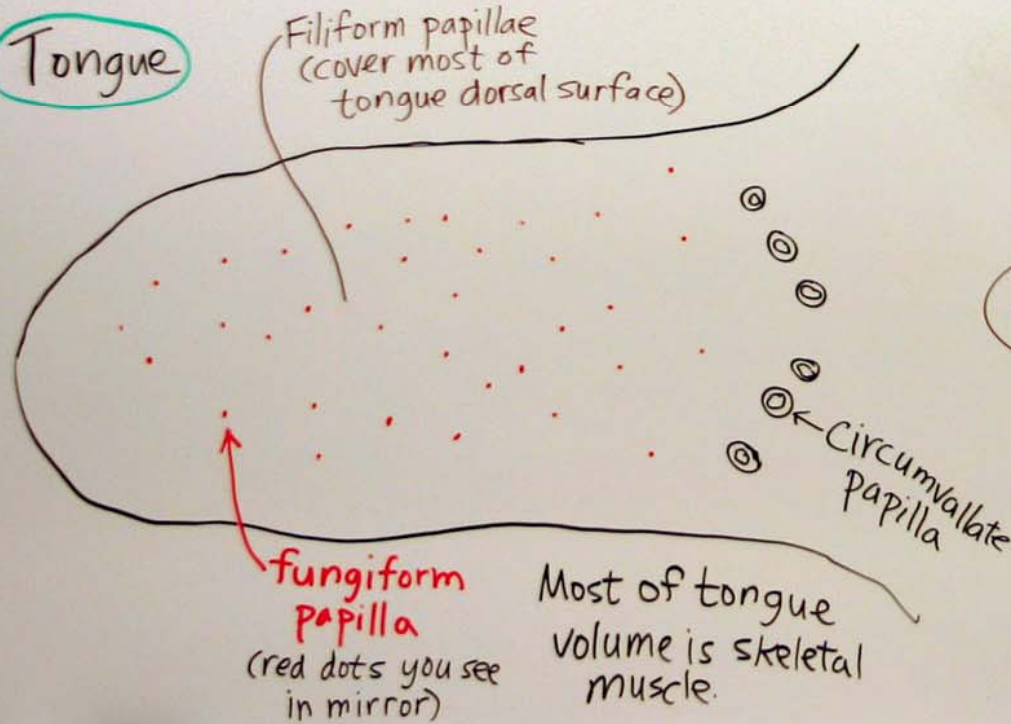 Tongue
Filiform papillae
(cover most of
tongue dorsal surface)
circumvallate
papilla
fungiform
papilla
(red dots you see
in mirror)
Most of tongue
volume is skeletal
muscle.